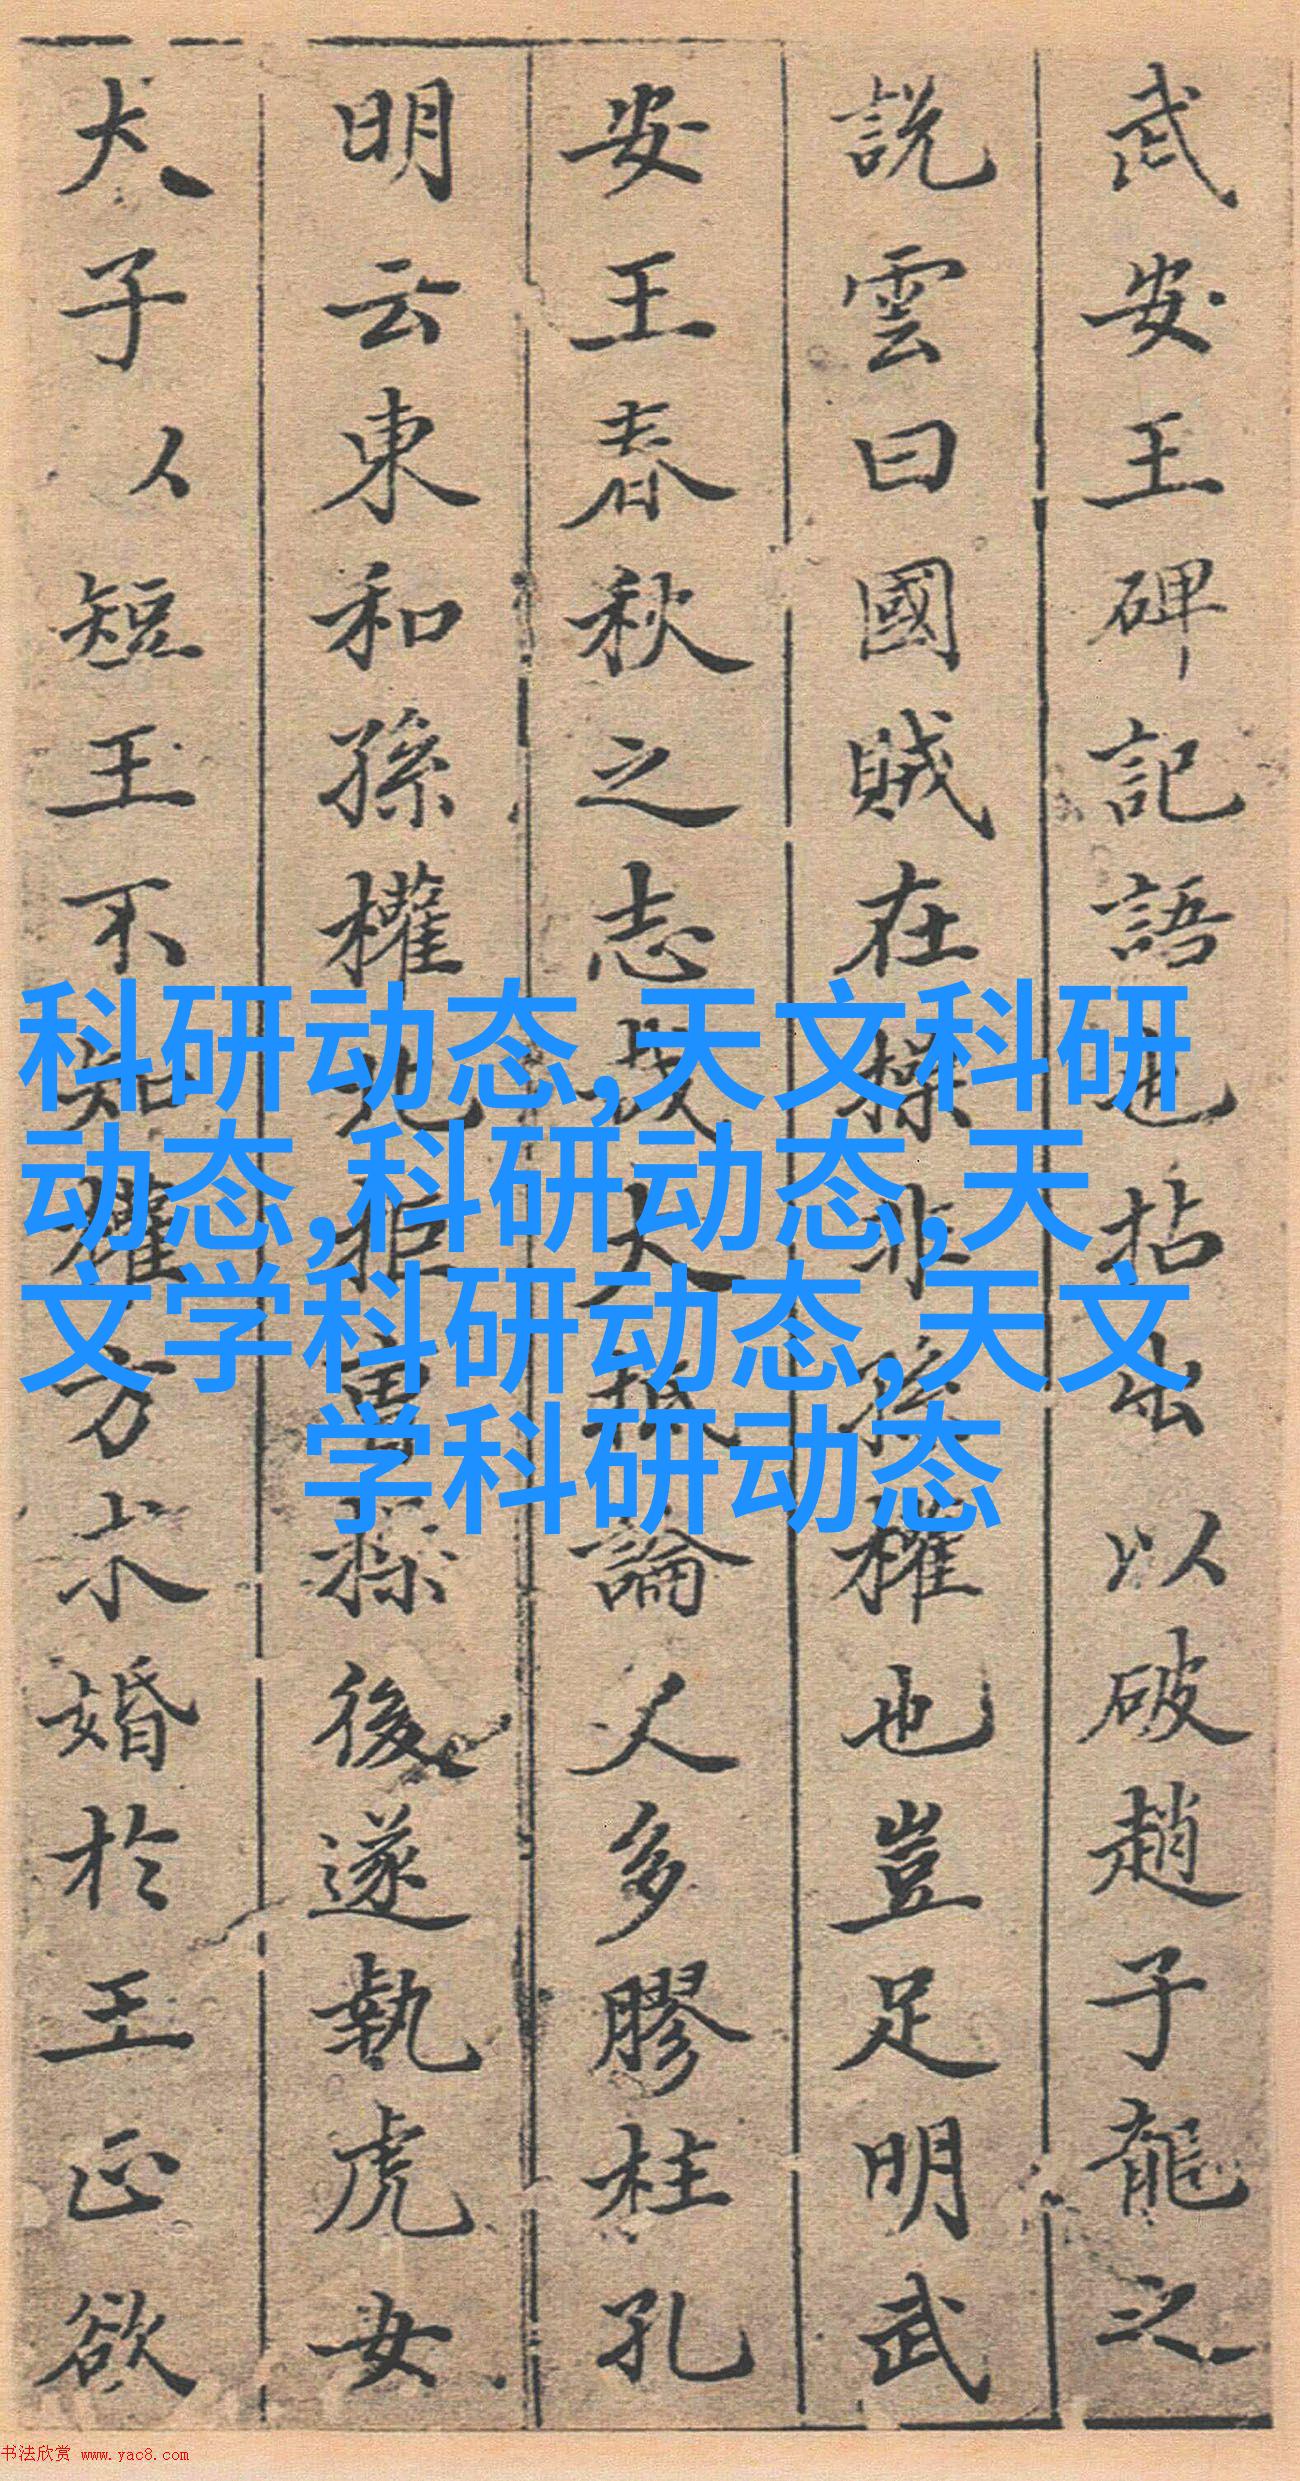 武安王碑記語
拈出以破趙子龍之
說雲曰國賊在操非孫權也豈足明武
安王春秋之志
大抵論人多膠柱孔
明云東和孫權北拒曹操後遂執虎女
犬子以短王不知權方求婚於王正欲
科研动态,天文科研
动态,科研动态,天
文学科研动态,天文
学科研动态
书法欣赏 www.yac8.com